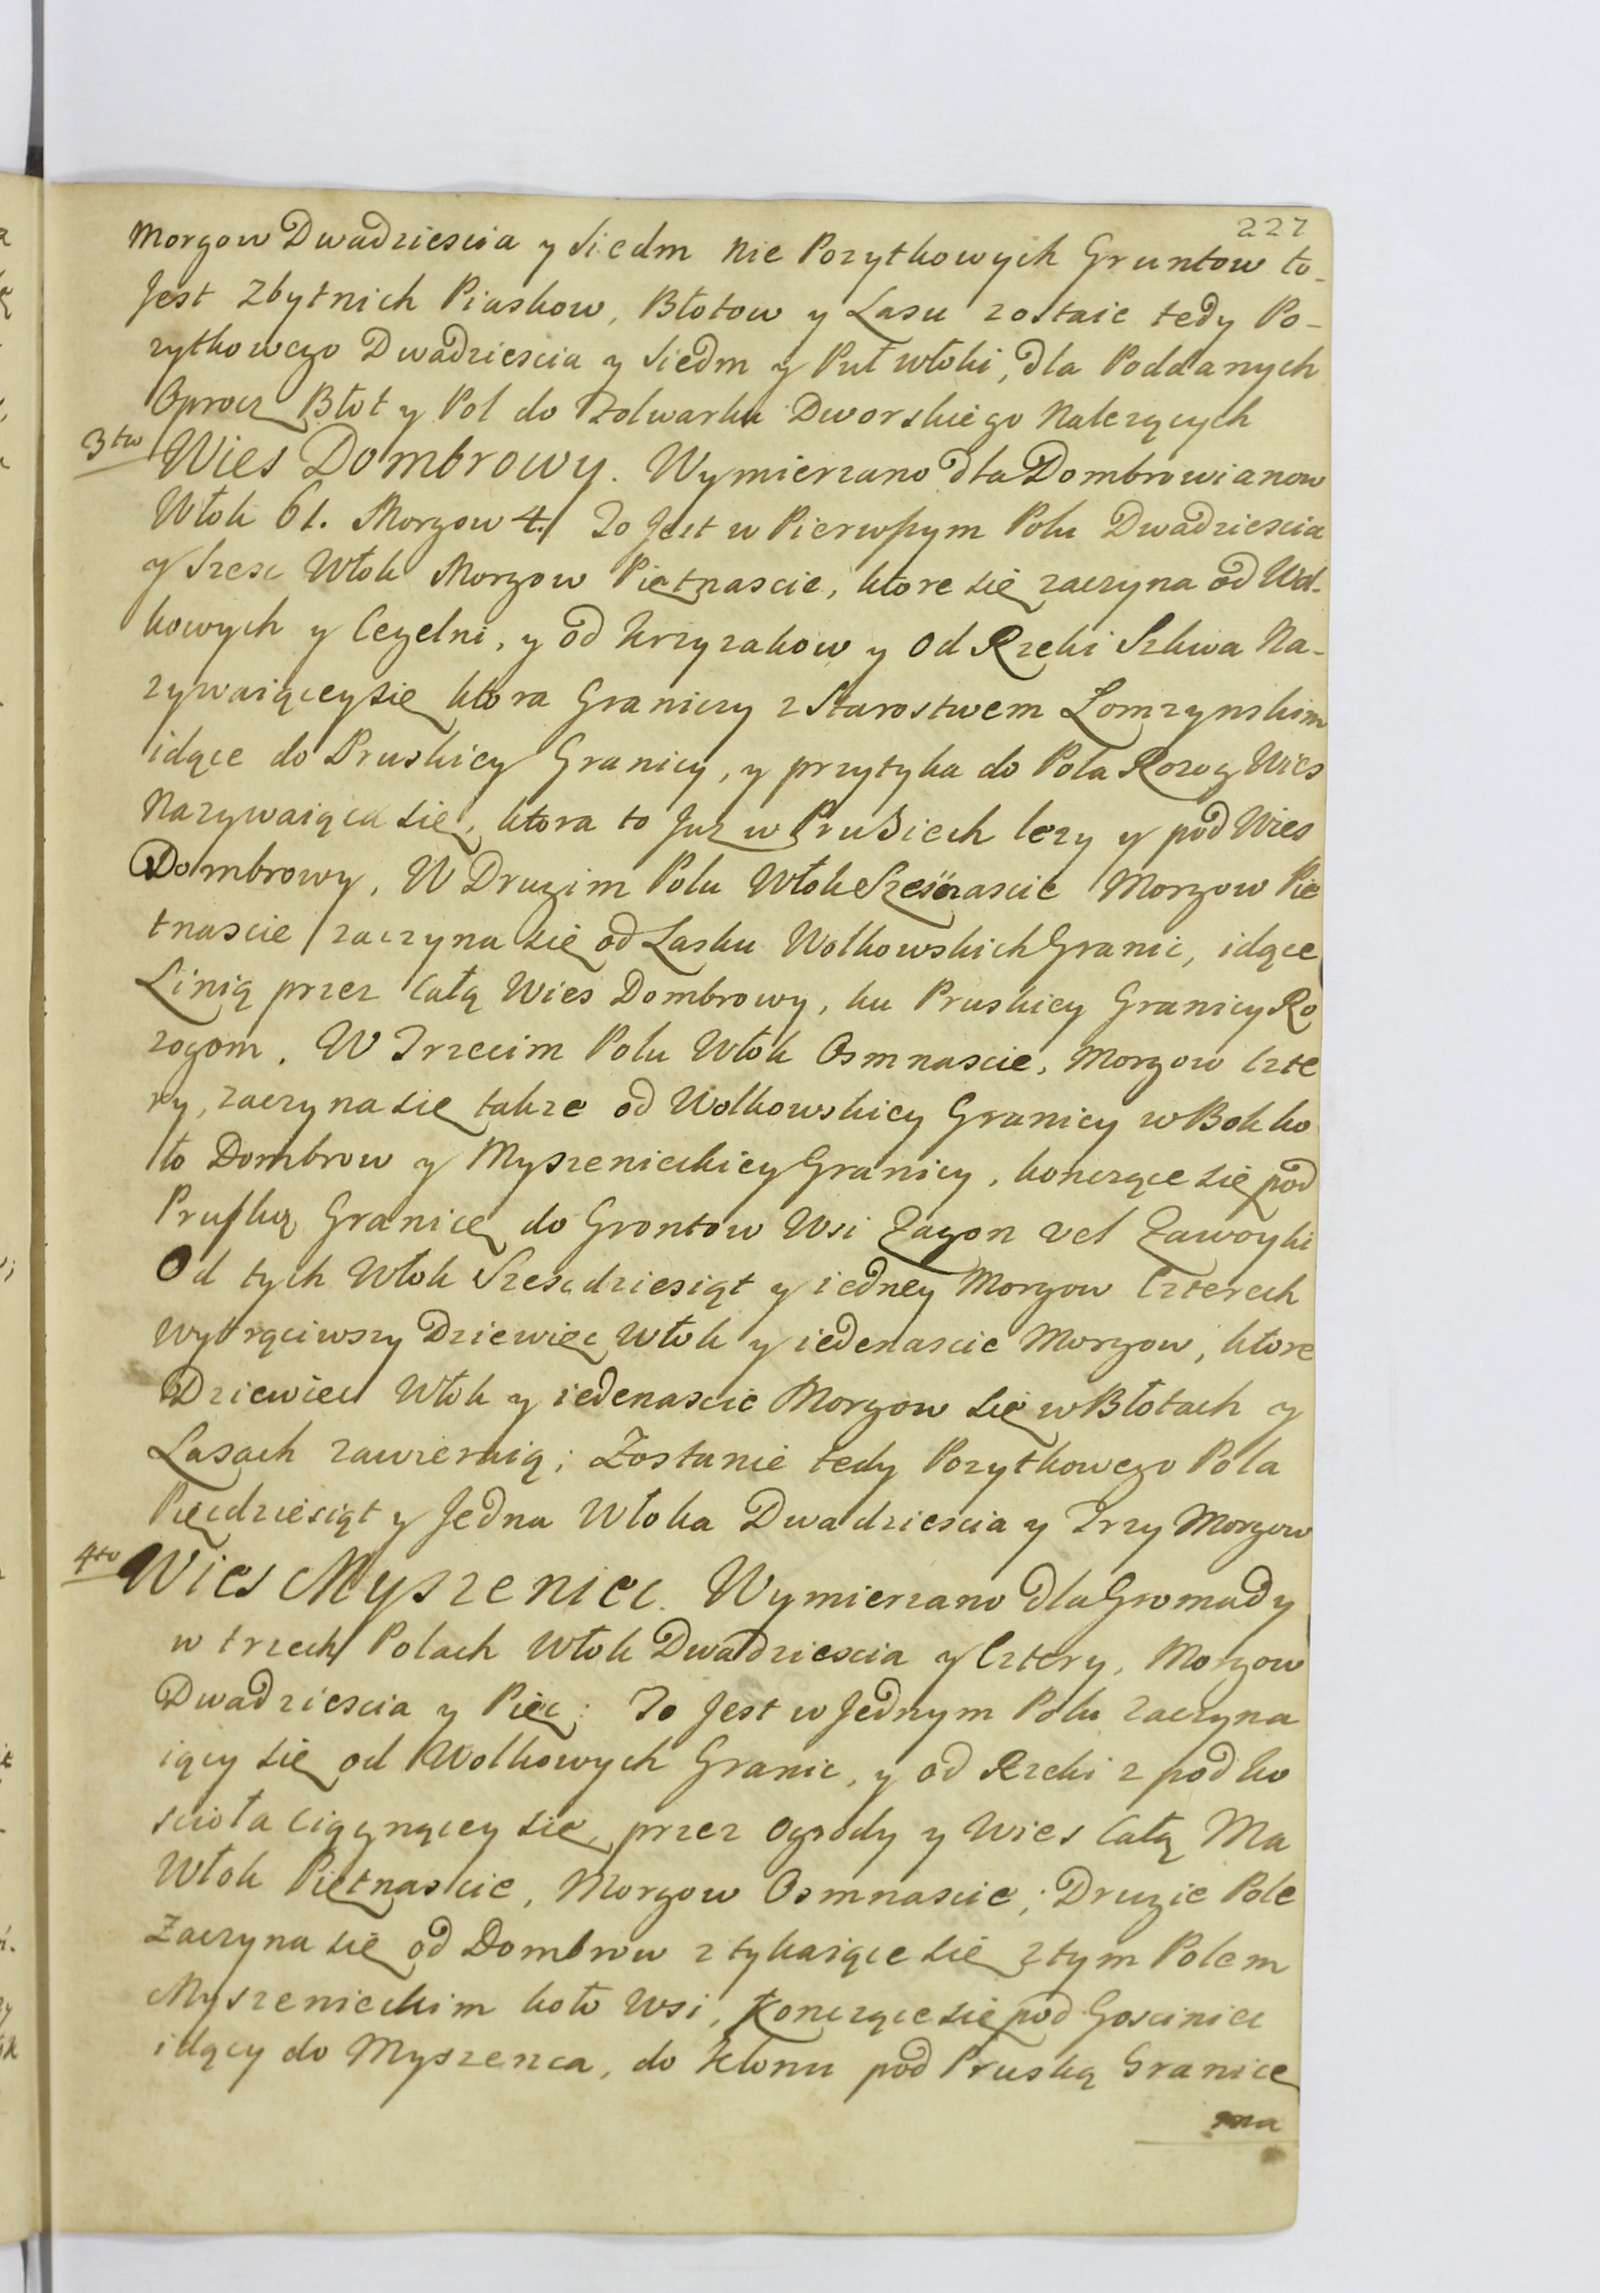 227
Morgow Dwadziescia y Siedm nie Pozytkowych Gruntow to-
Jest Zbytnich Piaskow, Błotow y Lasu zostaie tedy Po-
zytkowego Dwadziescia y Siedm y Puł włoki, dla Poddanych
Oprocz Błot y Pol do Folwarku Dworskiego Nalezących
3tio Wies Dombrowy. Wymierzano dla Dombrowianow
Włok 61. Morgow 4. To Jest w Pierwszym Polu Dwadziescia
y Szesc Włok Morgow Piętnascie, ktore się zaczyna od Wol-
kowych y Cegelni, y od Krzyzakow y Od Rzeki Szkwa Na-
zywaiącey się ktora Graniczy z Starostwem Lomzynskim
idące do Pruskiey Granicy, y przytyka do Pola Rozog Wies
Nazywaiąca się, ktora to Juz w Prusiech lezy y pod Wies
Dombrowy. W Drugim Polu Włok Szesnascie Morgow Pie
tnascie zaczyna się od Lasku Wolkowskich Granic, idące
Linią przez Całą Wies Dombrowy, ku Pruskiey Granicy Ro
zogom. W Trzecim Polu Włok Osmnascie, Morgow Czte
ry, zaczyna się takze od Wolkowskiey Granicy w Bok ko
ło Dombrow y Myszenieckiey Granicy, konczące się pod
Pruską Granicę do Grontow Wsi Zagon vel Zawoyki
Od tych Włok Szescdziesiąt y iedney Morgow Czterech
Wytrąciwszy Dziewięc Włok y iedenascie Morgow, ktore
Dziewiec Włok y iedenascie Morgow się w Błotach y
Lasach zawieraią; Zostanie tedy Pozytkowego Pola
Pięcdziesiąt y Jedna Włoka Dwadziescia y Trzy Morgow
4to Wies Myszeniec. Wymierzano dla Gromady
w trzech Polach Włok Dwadziescia y Cztery, Morgow
Dwadziescia y Pięc: To Jest w Jednym Polu zaczyna
iący się od Wolkowych Granic, y od Rzeki z pod Ko
scioła ciągnącey się, przez Ogrody y Wies Całą Ma
Włok Piętnascie, Morgow Osmnascie; Drugie Pole
Zaczyna się od Dombrow z tykaiące się z tym Polem
Myszenieckim koło Wsi, Konczące się pod Gosciniec
idący do Myszenca, do Klonu pod Pruską Granicę
ma